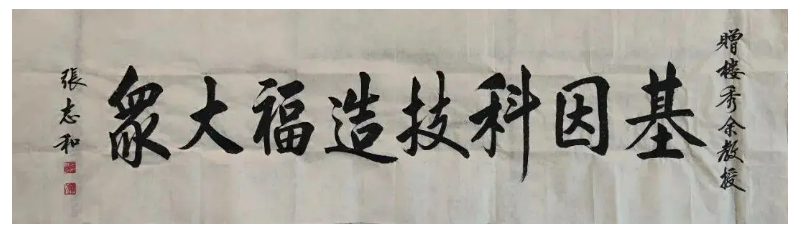 贈楼秀余教授
基因科技造福大衆
張志和